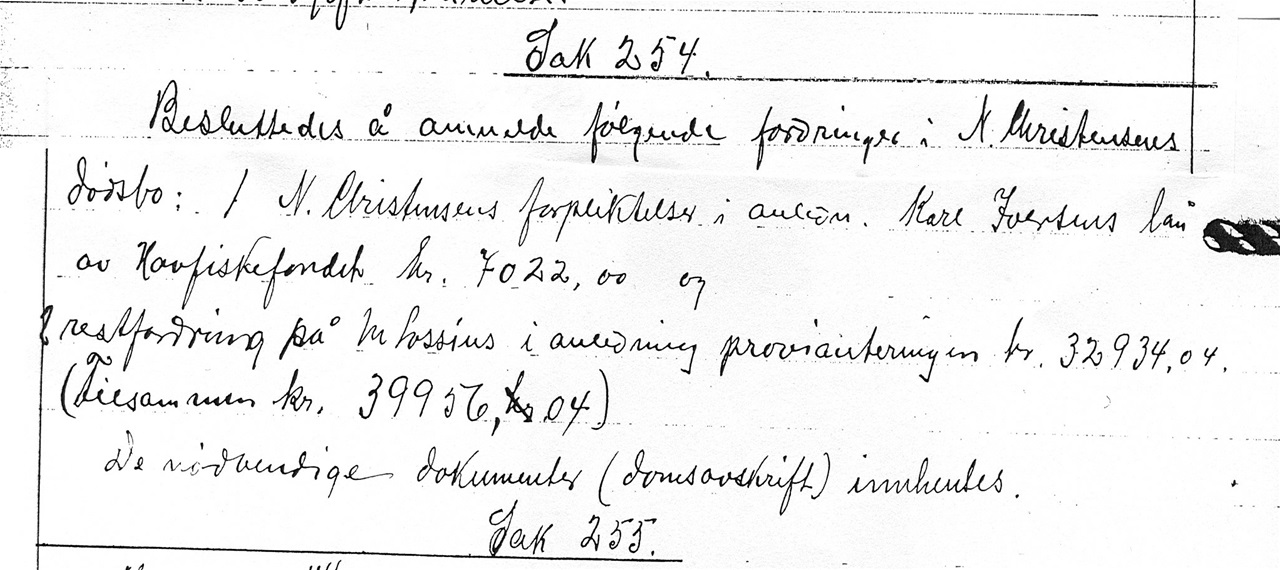 Sak 254.
Besluttedes å anmelde følgende fordringer i N. Christensens
dødsbo: 1 N. Christensens forpliktelser i anledn. Karl Iversens lån
av Havfiskefondet kr. 7022,00 og
2 restfordring på M Lossius i anledning provianteringen kr. 32934,04.
(Tilsammen kr. 39956,04)
De nødvendige dokumenter (domsavskrift) innhentes.
Sak 255.